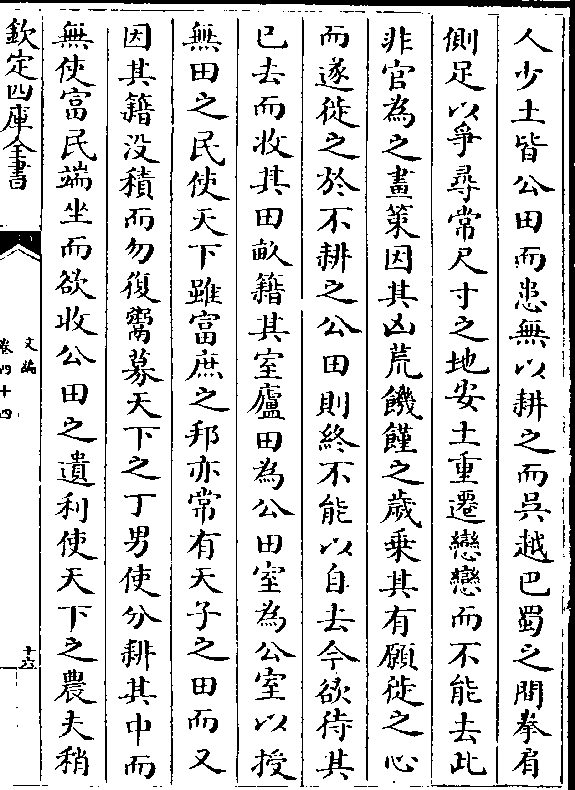 人少土皆公田而患無以耕之而吳越巴蜀之間拳肩
側足以爭尋常尺寸之地安土重遷戀戀而不能去此
非官為之畫策因其凶荒饑饉之歲乗其有願徙之心
而遂徙之於不耕之公田則終不能以自去今欲待其
已去而收其田畝籍其室廬田為公田室為公室以授
無田之民使天下雖富庶之邦亦常有天子之田而又
因其籍没積而勿復鬻募天下之丁男使分耕其中而
無使富民端坐而欲收公田之遺利使天下之農夫稍
欽定四庫全書
文編
卷四十四
十六